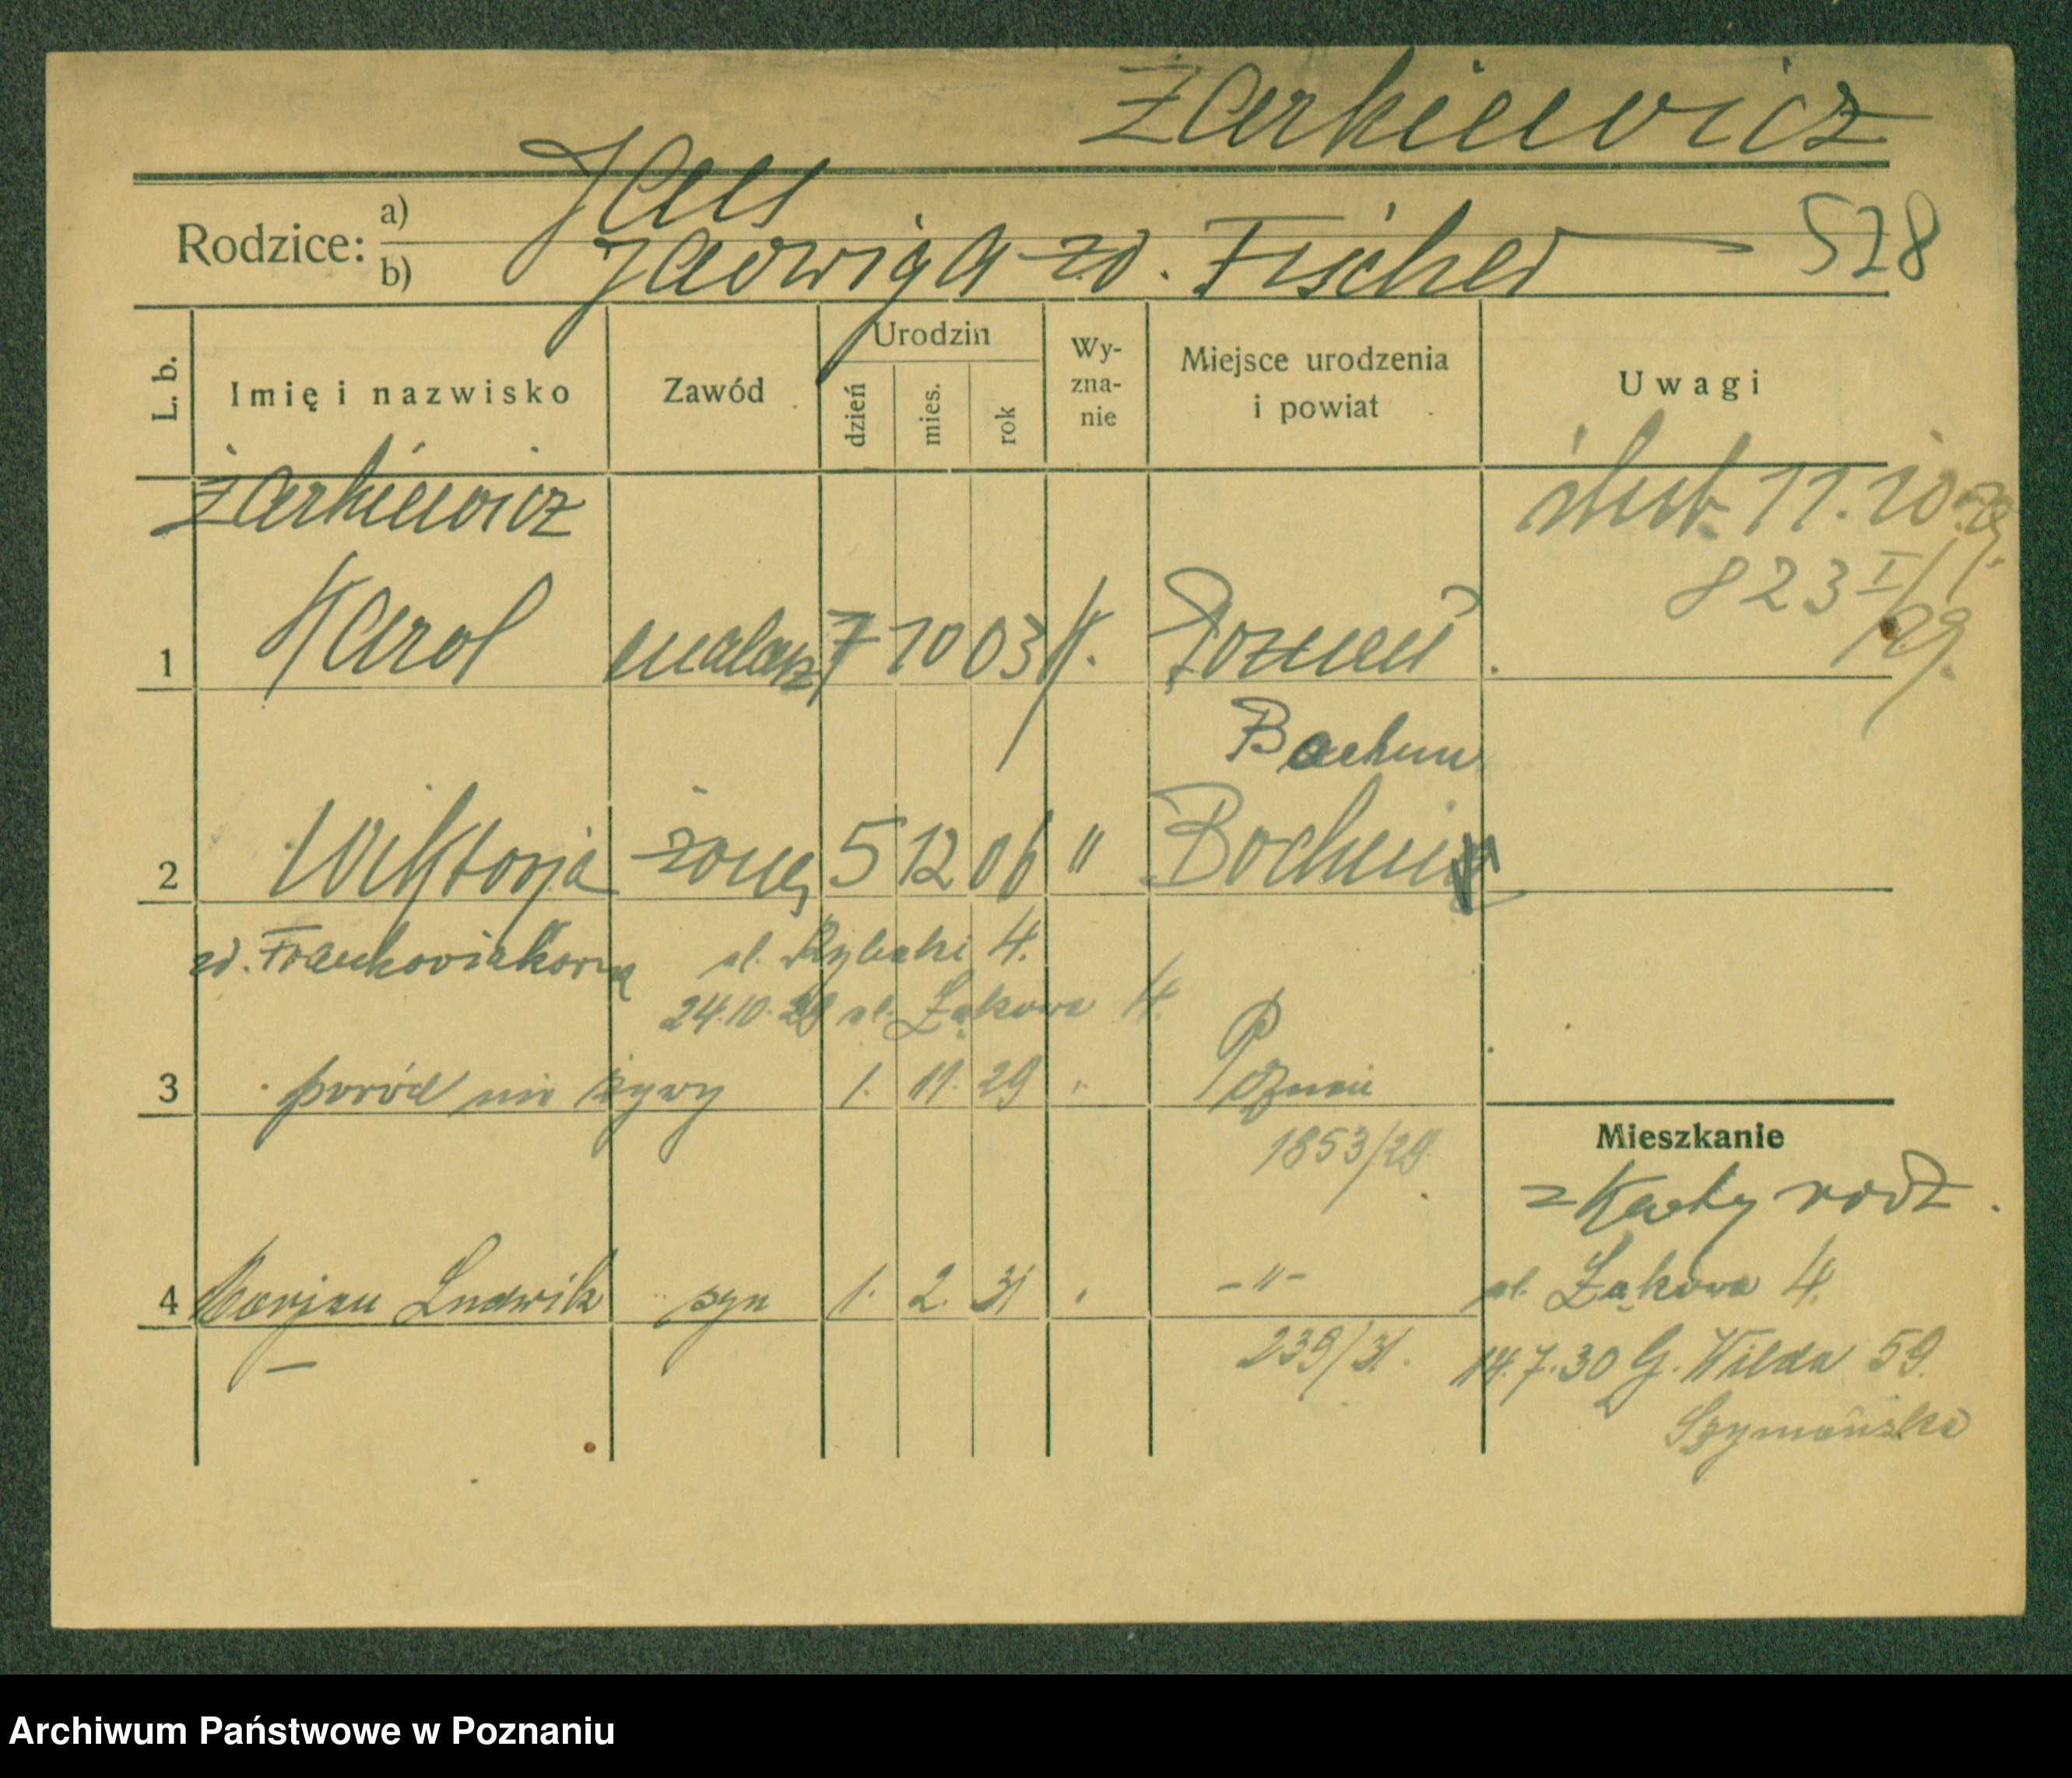 Żarkiewicz
Rodzice: a) Jan
b) Jadwiga zd. Fischer 528
L. b. Imię i nazwisko Zawód Urodzin dzień mies. rok Wyznanie Miejsce urodzenia i powiat Uwagi
Żarkiewicz ślub 11.10.29.
823 I/29.
1 Karol malarz 7 10 03 k. Poznań
Bochum
2 Wiktorja żona 5 12 06 " Bochum
zd. Frankowiakówna ul. Rybaki 4.
24.10.29 ul. Łąkowa 4.
3 poród nieżywy 1. 11. 29 " Poznań
1853/29
Mieszkanie
z karty rodz.
4 Marjan Ludwik syn 1. 2. 31 " -"- ul. Łąkowa 4.
239/31. 14.7.30 G. Wilda 59.
Szymańska
Archiwum Państwowe w Poznaniu